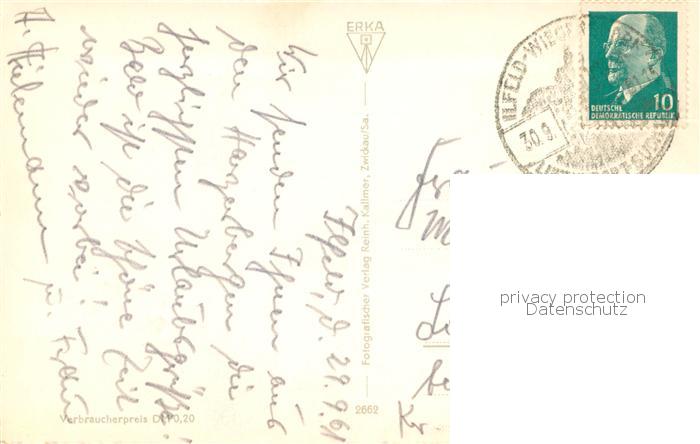 Ilfeld, d. 29.9.61
Wir senden Ihnen aus
den Harzerbergen die
herzlichsten Urlaubsgrüße!
Bald ist die schöne Zeit
wieder vorbei!
H. u. Frau
ERKA
Fotografischer Verlag Reinh. Kallmer, Zwickau/Sa.
2662
Verbraucherpreis DM 0,20
ILFELD-WIEGERSDORF
30.9
LUFTKURORT
DEUTSCHE
DEMOKRATISCHE REPUBLIK
10
privacy protection
Datenschutz
Kr.